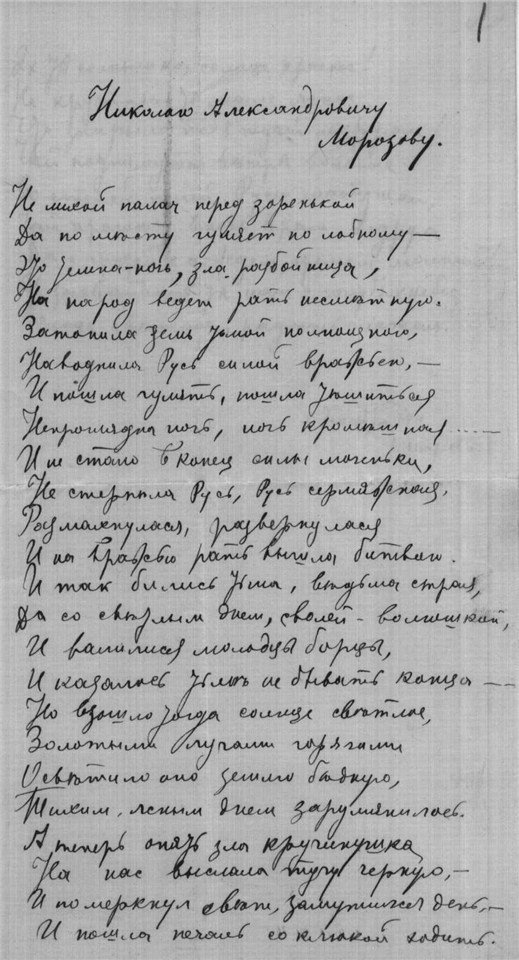 1
Николаю Александровичу
Морозову.
Не лихой палач перед зоренькой
Да по мѣсту гуляет по лобному —
Это земна-ночь, зла разбойница,
На народ ведет рать несмѣтную.
Затопила земь тьмой полнощною,
Наводнила Русь силой вражьею, —
И пошла гулять, пошла тѣшиться
Непроглядна ночь, ночь кромѣшная ....
И не стало в конец силы моченьки,
Не стерпѣла Русь, Русь сермяжная,
Размахнулася, развернулася
И на вражью рать вышла битвою.
И так бились тьма, вѣдьма страя,
Да со свѣтлым днем, с волей - волюшкой,
И валилися молодцы борцы,
И казалось тьмѣ не бывать конца —
Но взошло тогда солнце свѣтлое,
Золотыми лучами горячими
Освѣтило оно землю бѣдную,
Тихим, ясным днем зарумянилось.
А теперь опять зла кручинушка
На нас выслала тучу черную, —
И померкнул свѣт, замутился день, —
И пошла печаль со клюкой ходить.